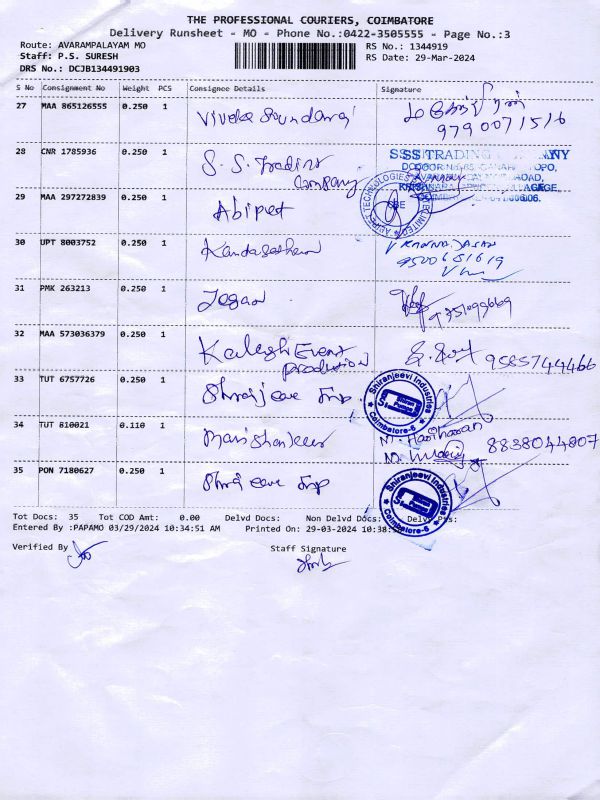 THE PROFESSIONAL COURIERS, COIMBATORE
Delivery Runsheet - MO - Phone No.:0422-3505555 - Page No.:3
Route: AVARAMPALAYAM MO
RS No.: 1344919
Staff: P.S. SURESH
RS Date: 29-Mar-2024
DRS No.: DCJB134491903
S No Consignment No Weight PCS Consignee Details Signature
27 MAA 865126555 0.250 1
9790071516
28 CNR 1785936 0.250 1 S.S. Trading Company
SS TRADING COMPANY
29 MAA 297272839 0.250 1
30 UPT 8003752 0.250 1
9500681619
31 PMK 263213 0.250 1 Jegan
32 MAA 573036379 0.250 1 Kailash Event production
9585744466
33 TUT 6757726 0.250 1
Shiranjeevi Industries
Coimbatore-6
34 TUT 810021 0.110 1
M. Hariharan
8838044807
35 PON 7180627 0.250 1
Shiranjeevi Industries
Coimbatore-6
Tot Docs: 35 Tot COD Amt: 0.00 Delvd Docs: Non Delvd Docs:
Entered By :PAPAMO 03/29/2024 10:34:51 AM Printed On: 29-03-2024 10:38:
Verified By
Staff Signature